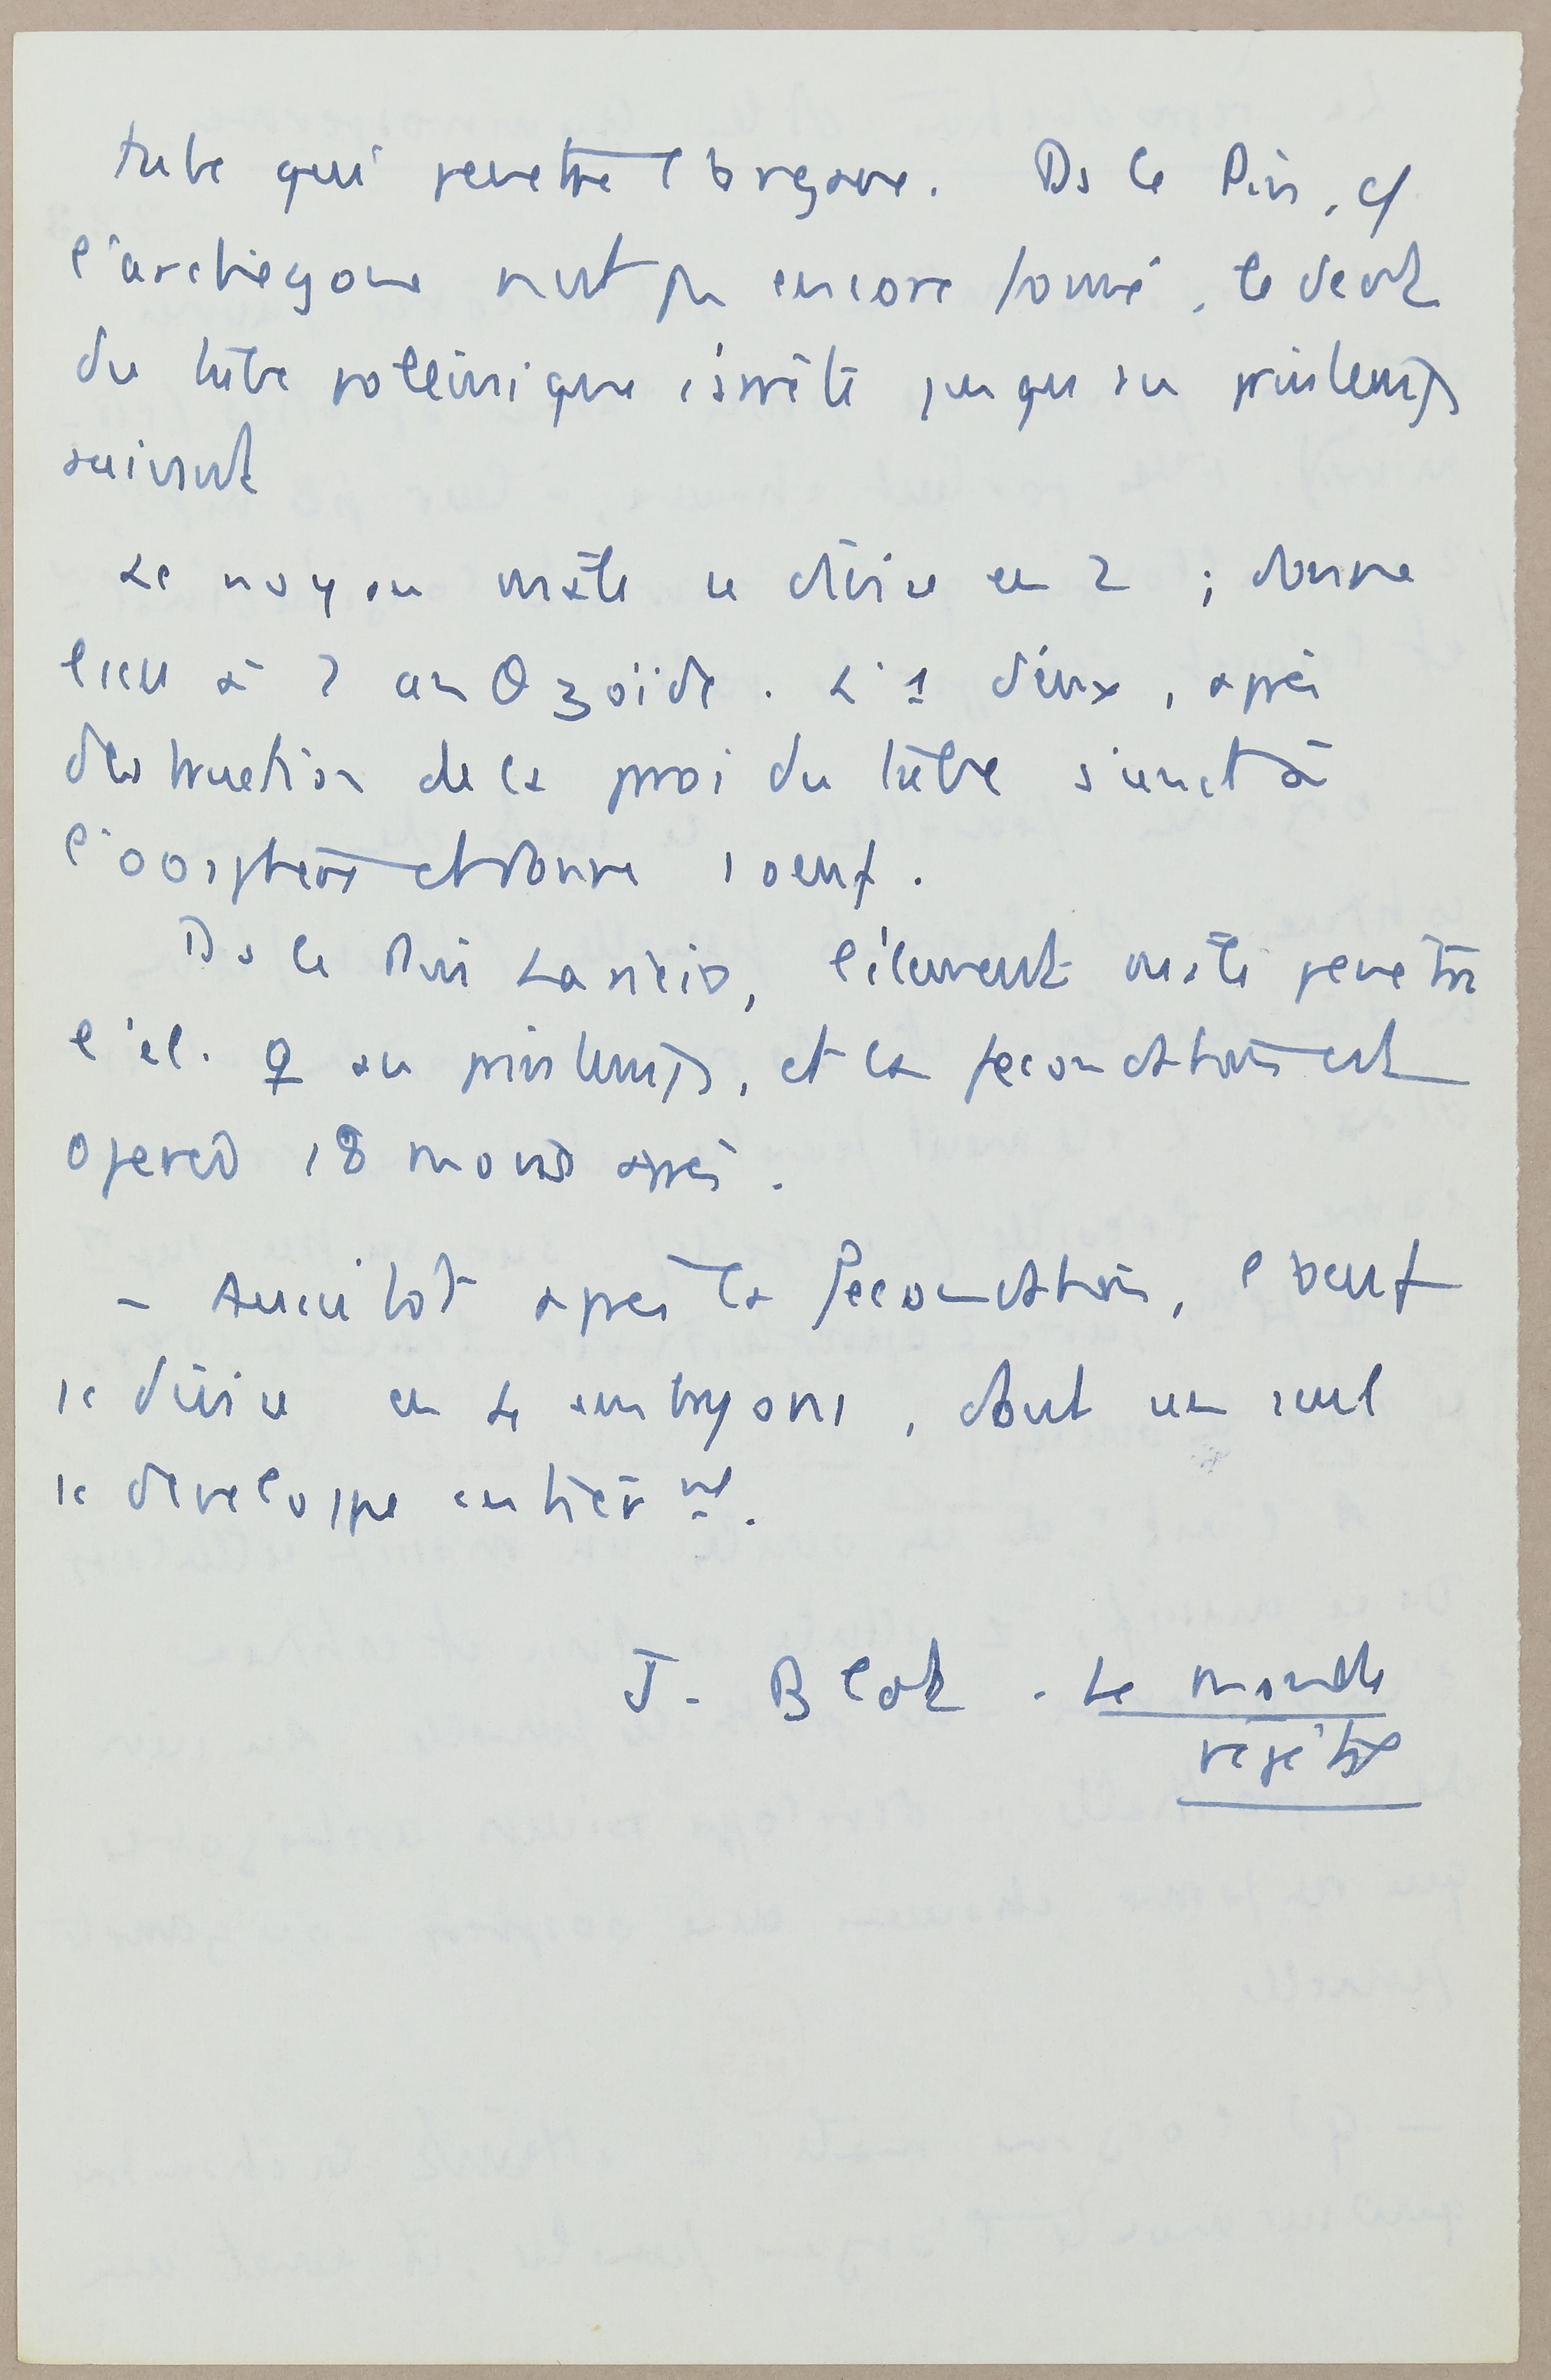 tube qui penetre l'organe. Ds le Pin, cô
l'archegone n'est pas encore formé, le devt
du tube pollinique s'arrête jusqu'au printemps
suivant
Le noyau mâle se divise en 2 ; donne
lieu à 2 anθzoïde. L'1 d'eux, après
destruction de la paroi du tube s'unit à
l'oosphere et donne 1 oeuf.
Ds le Pin Laricio, l'élement mâle penetre
l'el. ♀ au printemps, et la fecondation est
operee 18 mois après.
- Aussitôt après la fecondation, l'oeuf
se divise en 4 embryons, dont un seul
se developpe entièrmt.
J. Blot. Le monde
végétal